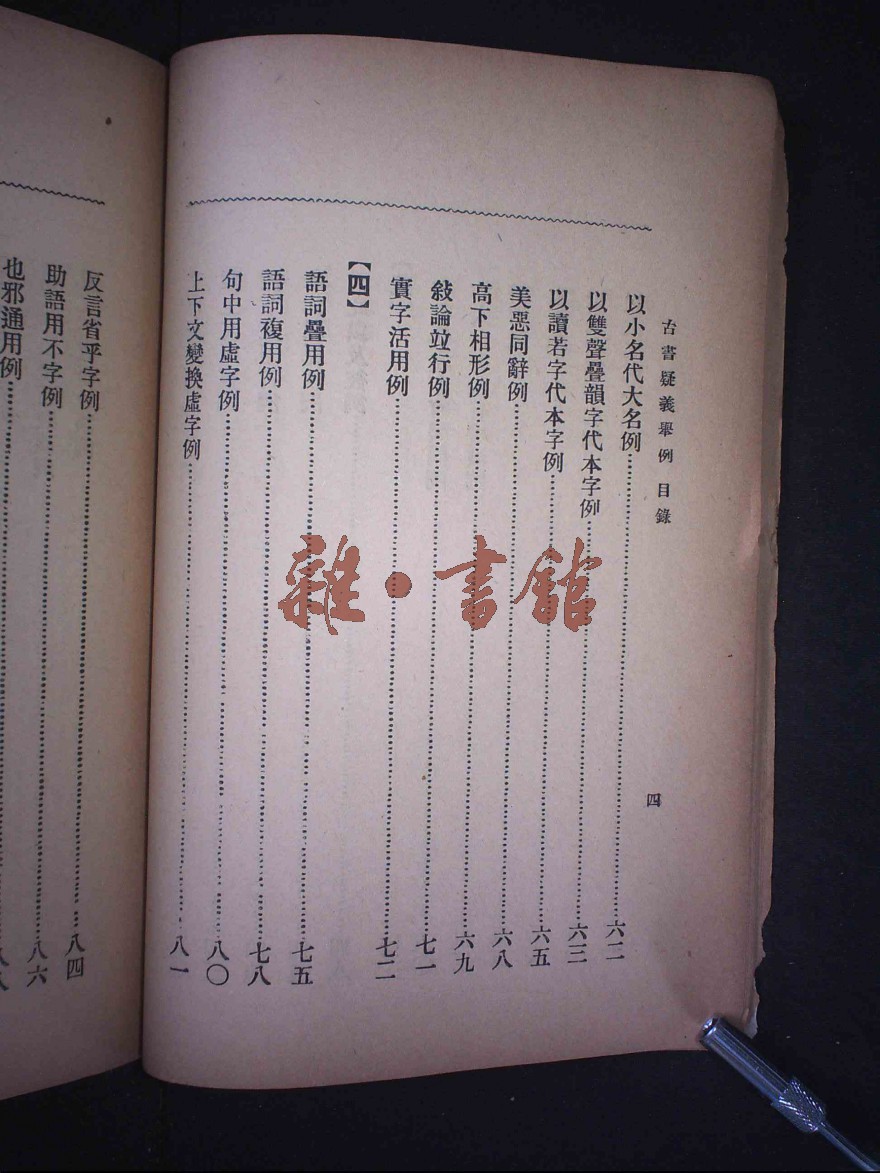 古書疑義舉例 目錄
四
以小名代大名例……六二
以雙聲疊韻字代本字例……六三
以讀若字代本字例……六五
美惡同辭例……六八
高下相形例……六九
敍論竝行例……七一
實字活用例……七二
【四】
語詞疊用例……七五
語詞複用例……七八
句中用虛字例……八〇
上下文變換虛字例……八一
反言省乎字例……八四
助語用不字例……八六
也邪通用例……八
雜·書館